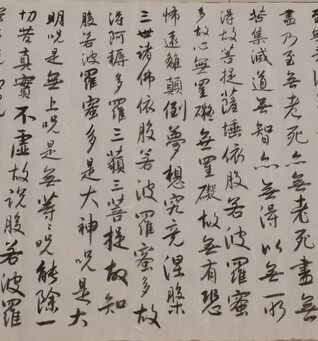 盡乃至無老死亦無老死盡無
苦集滅道無智亦無得以無所
得故菩提薩埵依般若波羅蜜
多故心無罣礙無罣礙故無有恐
怖遠離顛倒夢想究竟涅槃
三世諸佛依般若波羅蜜多故
得阿耨多羅三藐三菩提故知
般若波羅蜜多是大神呪是大
明呪是無上呪是無等〻呪能除一
切苦真實不虛故說般若波羅